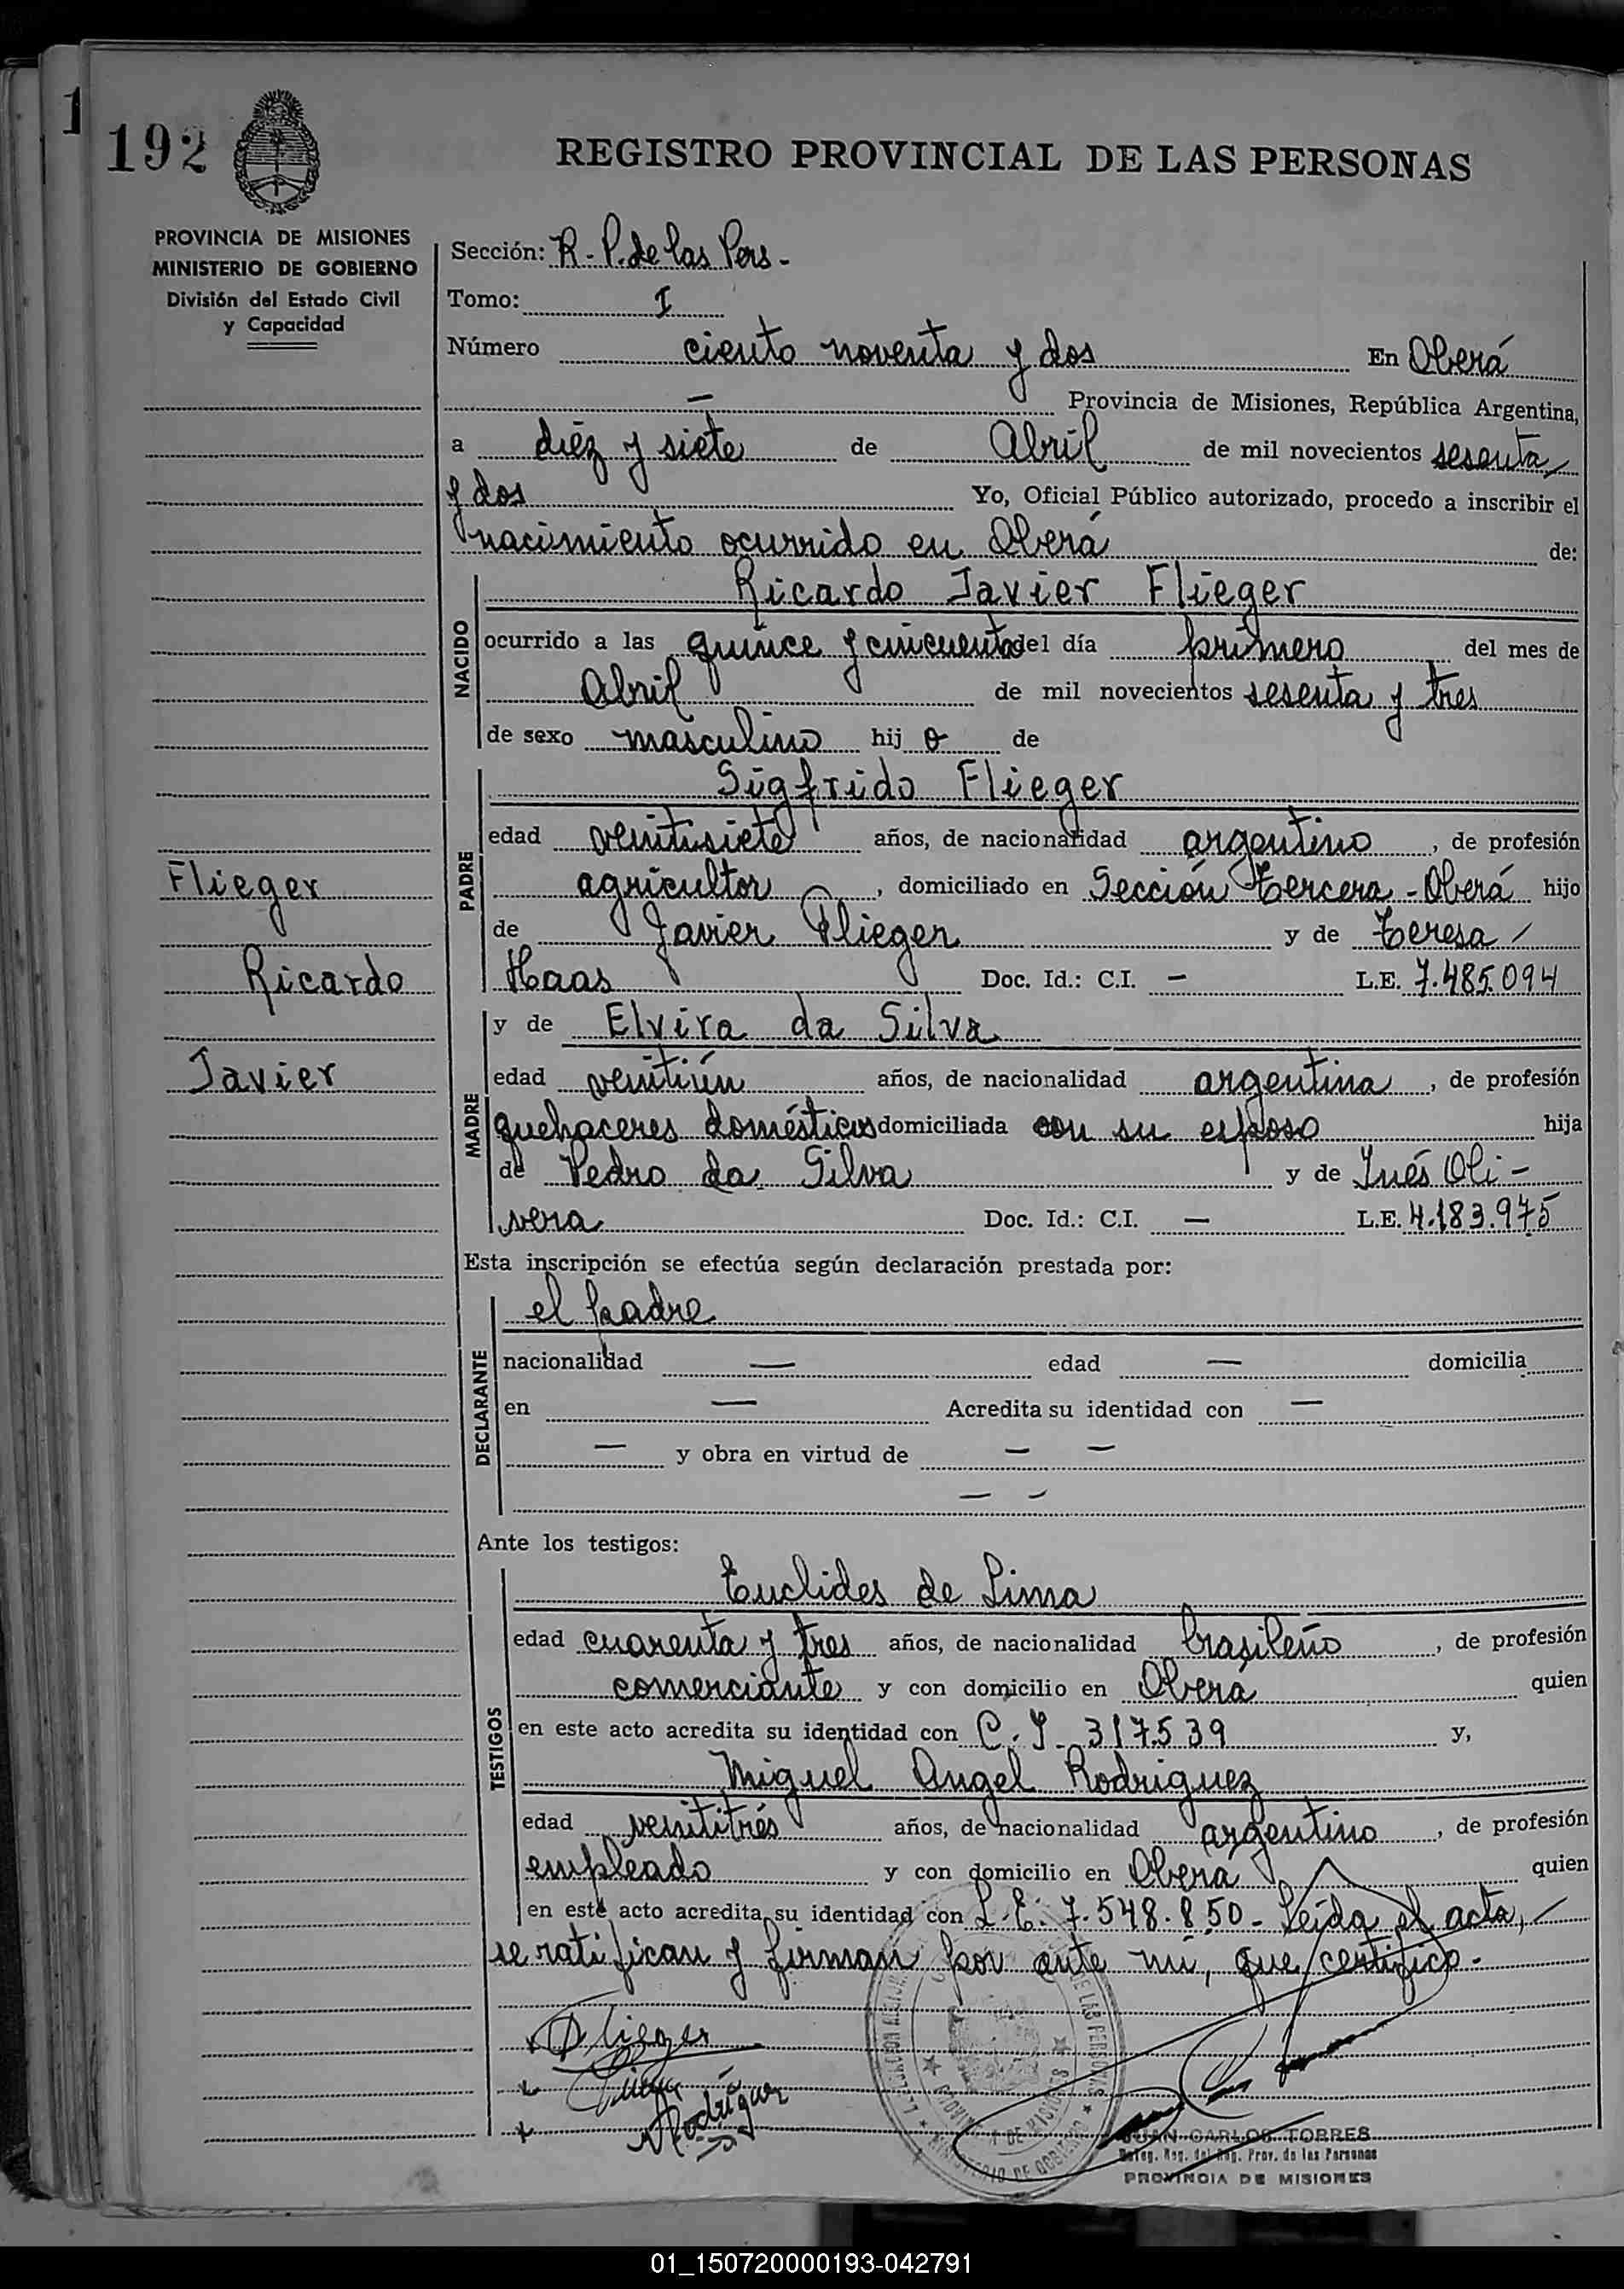 1
192
REGISTRO PROVINCIAL DE LAS PERSONAS
PROVINCIA DE MISIONES
MINISTERIO DE GOBIERNO
División del Estado Civil
y Capacidad
Sección: R. P. de las Pers -
Tomo: I
Número ciento noventa y dos En Oberá
— Provincia de Misiones, República Argentina,
a diéz y siete de Abril de mil novecientos sesenta
y dos Yo, Oficial Público autorizado, procedo a inscribir el
nacimiento ocurrido en Oberá de:
NACIDO
Ricardo Javier Flieger
ocurrido a las quince y cincuenta del día primero del mes de
Abril de mil novecientos sesenta y tres
de sexo masculino hij o de
PADRE
Sigfrido Flieger
edad veintisiete años, de nacionalidad argentino, de profesión
agricultor, domiciliado en Sección Tercera - Oberá hijo
de Javier Flieger y de Teresa
Haas Doc. Id.: C.I. — L.E. 7.485.094
Flieger
Ricardo
Javier
MADRE
y de Elvira da Silva
edad veintiún años, de nacionalidad argentina, de profesión
quehaceres domésticos domiciliada con su esposo hija
de Pedro da Silva y de Inés Oli -
vera Doc. Id.: C.I. — L.E. 4.183.975
Esta inscripción se efectúa según declaración prestada por:
DECLARANTE
el padre
nacionalidad — edad — domicilia
en — Acredita su identidad con —
— y obra en virtud de — —
— —
Ante los testigos:
TESTIGOS
Euclides de Lima
edad cuarenta y tres años, de nacionalidad brasileño, de profesión
comerciante y con domicilio en Oberá quien
en este acto acredita su identidad con C. I. 317.539 y,
Miguel Angel Rodriguez
edad veintitrés años, de nacionalidad argentino, de profesión
empleado y con domicilio en Oberá quien
en este acto acredita su identidad con L. E. 7.548.850 - Leída el acta,
se ratifican y firman por ante mí, que certifico.-
Flieger
Rodriguez
JUAN CARLOS TORRES
Deleg. Reg. del Reg. Prov. de las Personas
PROVINCIA DE MISIONES
DE LAS PERSONAS
PROVINCIA DE MISIONES
MINISTERIO DE GOBIERNO
01_150720000193-042791